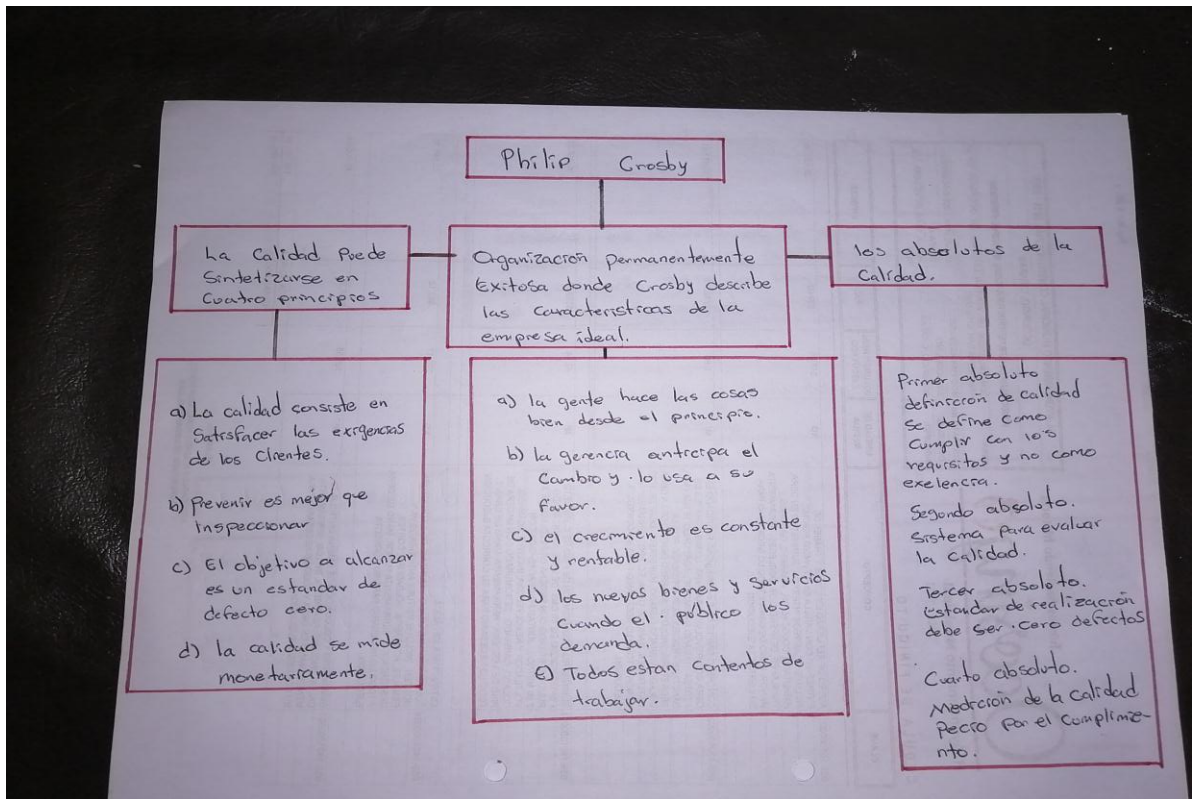 Philip Crosby
La Calidad Puede
Sintetizarse en
Cuatro principios
Organización permanentemente
Exitosa donde Crosby describe
las caracteristicas de la
empresa ideal.
los absolutos de la
Calidad.
a) La calidad consiste en
Satisfacer las exigencias
de los Clientes.
b) Prevenir es mejor que
Inspeccionar
c) El objetivo a alcanzar
es un estandar de
defecto cero.
d) la calidad se mide
monetariamente.
a) la gente hace las cosas
bien desde el principio.
b) la gerencia anticipa el
Cambio y lo usa a su
favor.
c) el crecimiento es constante
y rentable.
d) los nuevos bienes y servicios
cuando el público los
demanda.
E) Todos estan contentos de
trabajar.
Primer absoluto
definicion de calidad
se define como
Cumplir con los
requisitos y no como
exelencia.
Segundo absoluto.
Sistema para evaluar
la calidad.
Tercer absoluto.
Estandar de realización
debe ser cero defectos
Cuarto absoluto.
Medición de la calidad
Pecio por el Complimie-
nto.